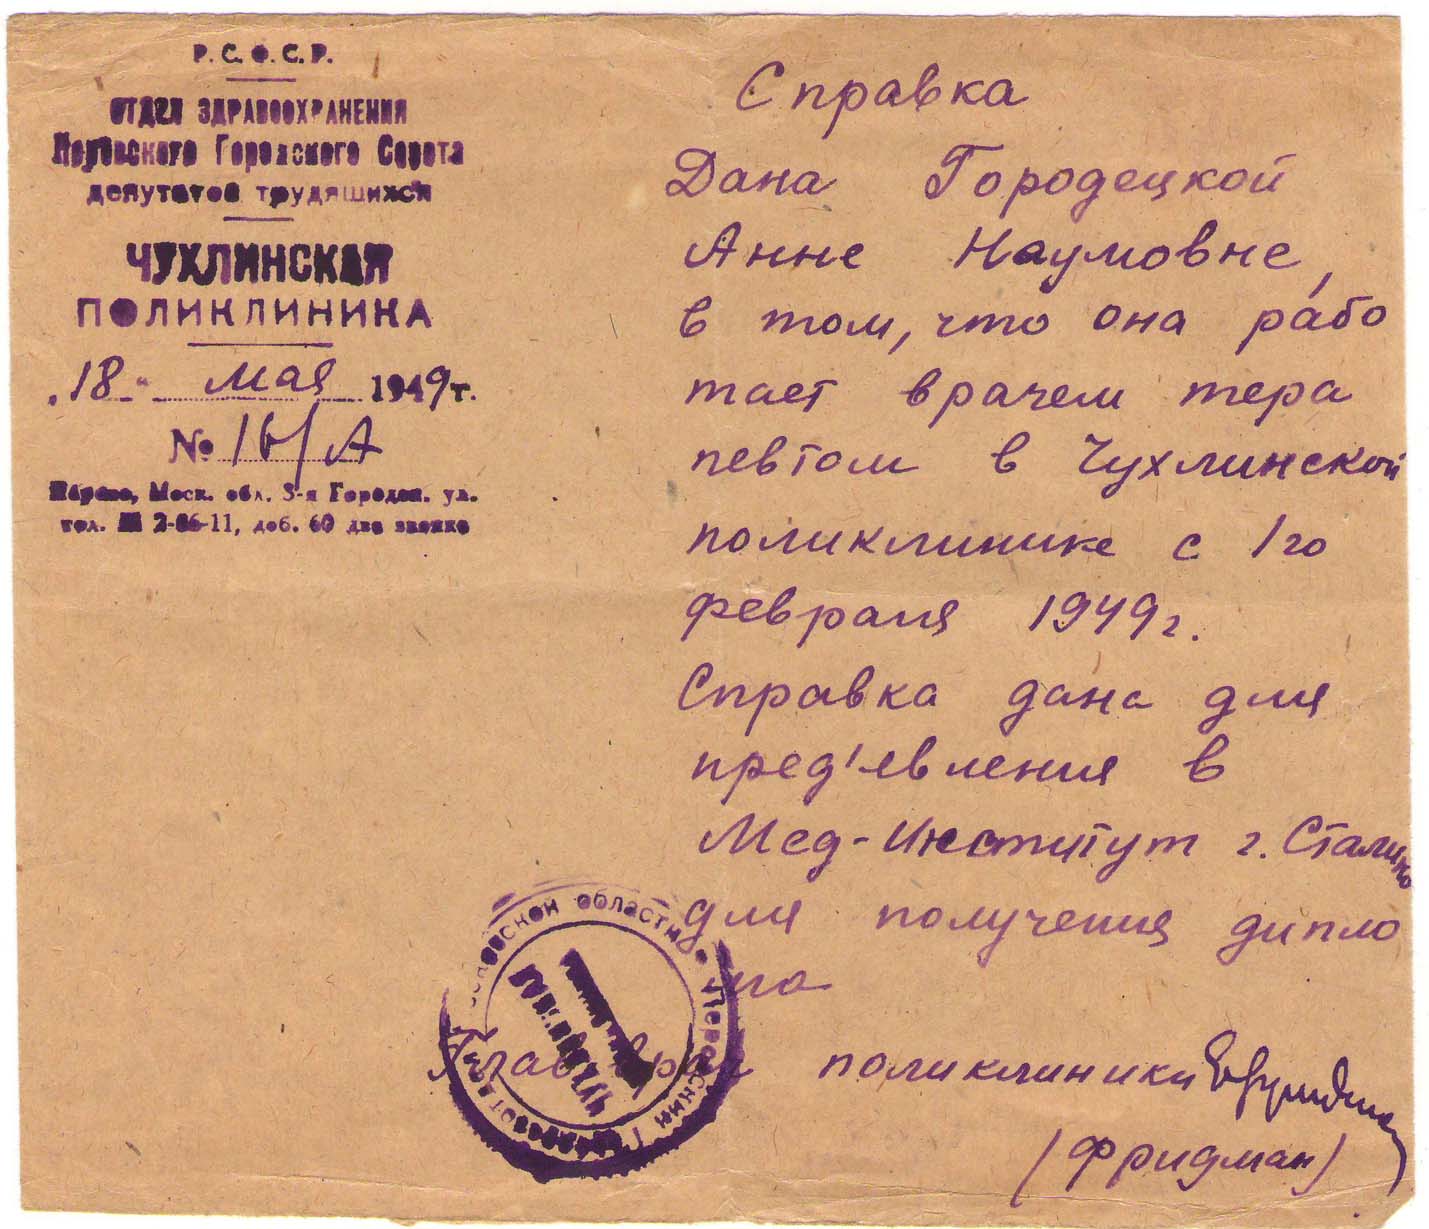 Р.С.Ф.С.Р.
ОТДЕЛ ЗДРАВООХРАНЕНИЯ
Перовского Городского Совета
депутатов трудящихся
ЧУХЛИНСКАЯ
ПОЛИКЛИНИКА
"18" мая 1949 г.
№ 16/А
Перово, Моск. обл. 3-я Городск. ул.
тел. 2-06-11, доб. 60 два звонка
Справка
Дана Городецкой
Анне Наумовне,
в том, что она рабо
тает врачем тера
певтом в Чухлинской
поликлинике с 1го
февраля 1949 г.
Справка дана для
пред'явления в
Мед-Институт г. Сталино
для получения дипло
ма
Глав врач поликлиники
(Фридман)
Московской области • Перовский Горздравотдел
ЧУХЛИНСКАЯ